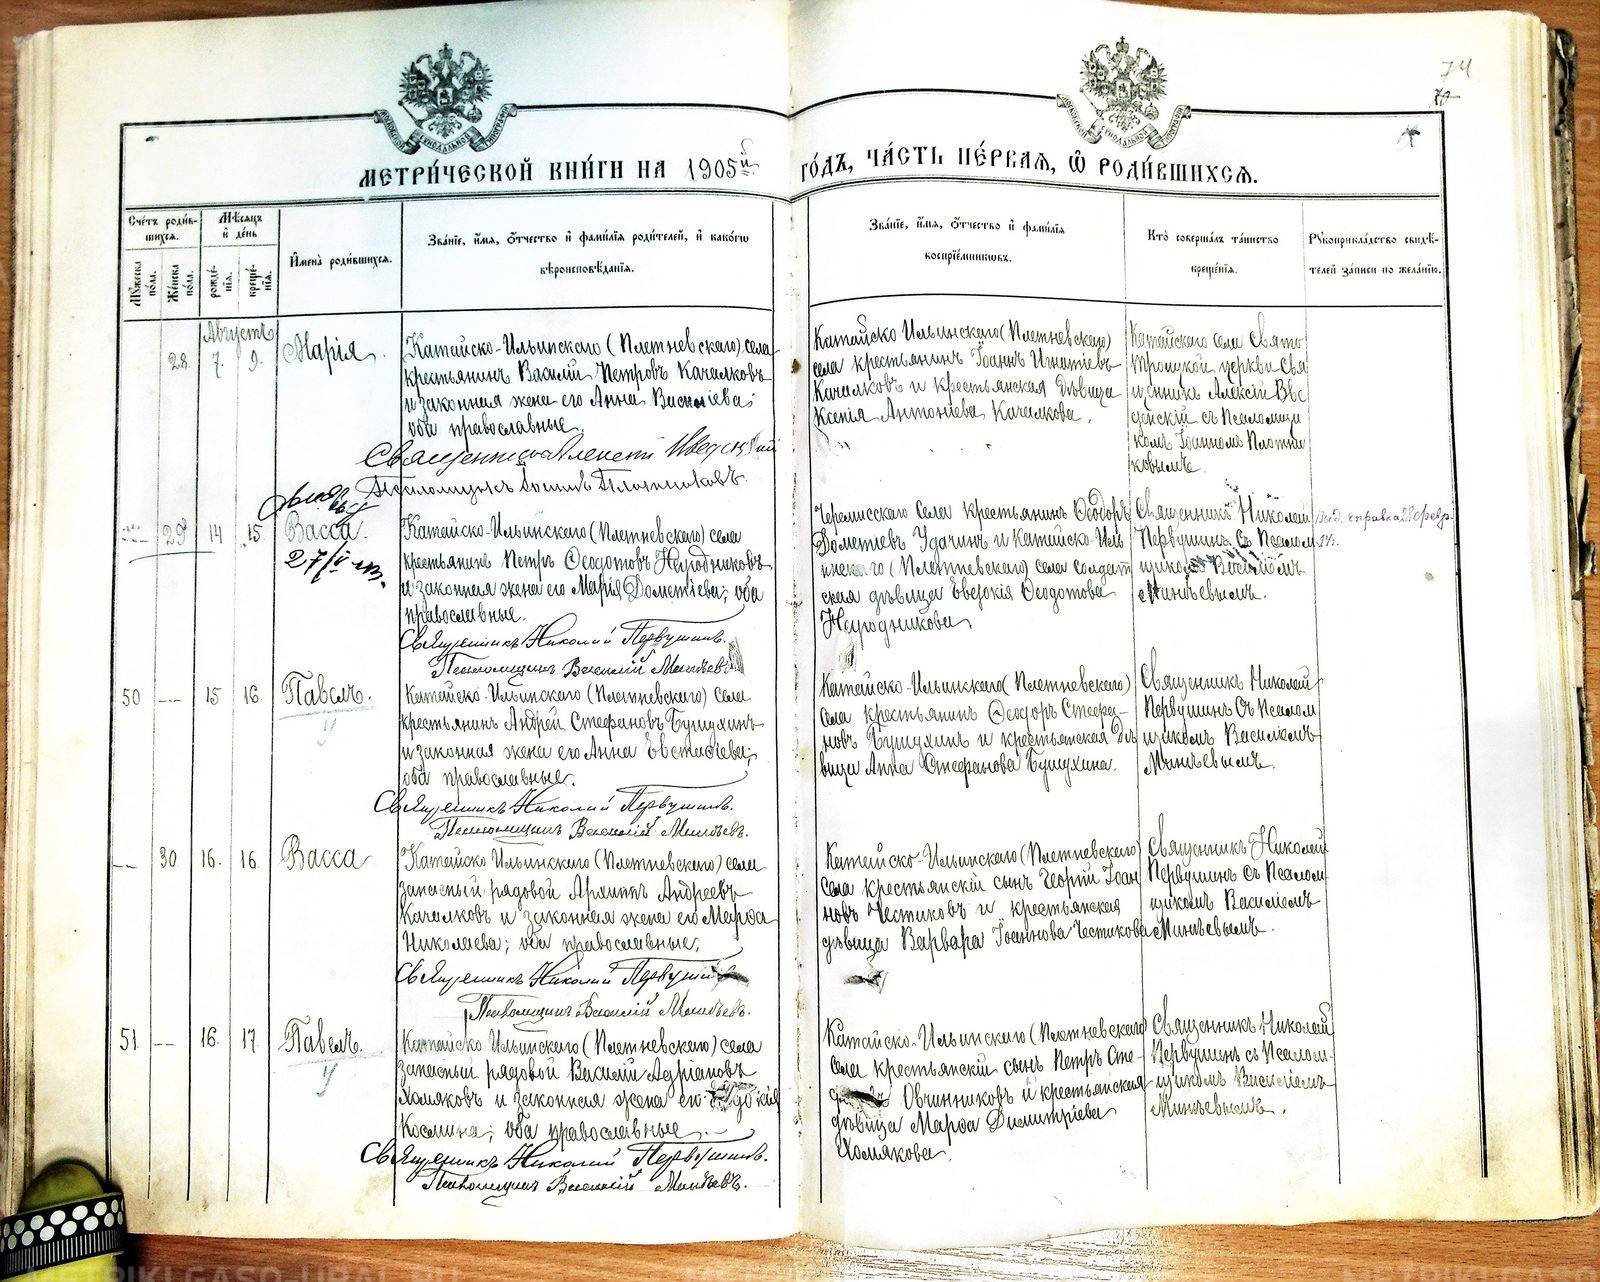 74
70
МЕТРИ́ЧЕСКОЙ КНИ́ГИ НА 1905й ГО́ДЪ, ЧА́СТЬ ПЕ́РВАЯ, Ѡ҆ РОДИ́ВШИХСѦ.
Сче́тъ роди́в-
шихсѧ.
Мꙋ́жеска по́ла.
Же́нска по́ла.
Мѣ́сѧцъ
и҆ де́нь
рожде́нїѧ.
креще́нїѧ.
И҆мена̀ роди́вшихсѧ.
Зва́нїе, и҆́мѧ, ѻ҆́тчество и҆ фами́лїѧ роди́телей, и҆ како́гѡ
вѣроисповѣ́данїѧ.
Зва́нїе, и҆́мѧ, ѻ҆́тчество и҆ фами́лїѧ
воспрїе́мникѡвъ.
Кто̀ соверша́лъ та́инство
креще́нїѧ.
Рꙋкоприкла́дство свидѣ́-
телей за́писи по жела́нїю.
Августъ
28. 7. 9. Марія.
Катайско-Ильинскаго (Плетневскаго) села
крестьянинъ Василій Петровъ Качалковъ
и законная жена его Анна Васильева;
оба православные.
Священникъ Алексей Введенскій
Псаломщикъ Іоаннъ Плотниковъ
Катайско Ильинскаго (Плетневскаго)
села крестьянинъ Іоаннъ Игнатіевъ
Качалковъ и крестьянская дѣвица
Ксенія Антоніева Качалкова.
Катайскаго села Свято
Троицкой церкви Свя
щенникъ Алексій Вве
денскій съ Псаломщи
комъ Іоанномъ Плотни
ковымъ.
29 14 15 Васса
27/V
Катайско-Ильинскаго (Плетневскаго) села
крестьянинъ Петръ Ѳеодотовъ Неуродниковъ
и законная жена его Марія Дометіева; оба
православные.
Священникъ Николай Первушинъ.
Псаломщикъ Василій Минѣевъ.
Черемисскаго села крестьянинъ Ѳеодоръ
Дометіевъ Удачинъ и Катайско-Иль
инскаго (Плетневскаго) села солдат
ская дѣвица Евдокія Ѳеодотова
Неуродникова
Священникъ Николай
Первушинъ съ Псалом
щикомъ Василіемъ
Минѣевымъ.
Выд. справка 28 февр.
50 -- 15 16 Павелъ.
Катайско-Ильинскаго (Плетневскаго) села
крестьянинъ Андрей Стефановъ Бушухинъ
и законная жена его Анна Евстафіева;
оба православные.
Священникъ Николай Первушинъ.
Псаломщикъ Василій Минѣевъ.
Катайско-Ильинскаго (Плетневскаго)
села крестьянинъ Ѳеодоръ Стефа-
новъ Бушухинъ и крестьянская дѣ
вица Анна Стефанова Бушухина.
Священникъ Николай
Первушинъ съ Псалом
щикомъ Василіемъ
Минѣевымъ.
-- 30 16. 16. Васса
Катайско Ильинскаго (Плетневскаго) села
запасный рядовой Архипъ Андреевъ
Качалковъ и законная жена его Марѳа
Николаева; оба православные.
Священникъ Николай Первушинъ
Псаломщикъ Василій Минѣевъ.
Катайско-Ильинскаго (Плетневскаго)
села крестьянскій сынъ Георгій Іоан
новъ Честиковъ и крестьянская
дѣвица Варвара Іоаннова Честикова
Священникъ Николай
Первушинъ съ Псалом-
щикомъ Василіемъ
Минѣевымъ.
51 -- 16. 17. Павелъ.
Катайско Ильинскаго (Плетневскаго) села
запасный рядовой Василій Адріановъ
Хомяковъ и законная жена его Евдокія
Космина; оба православные.
Священникъ Николай Первушинъ.
Псаломщикъ Василій Минѣевъ.
Катайско-Ильинскаго (Плетневскаго)
села крестьянскій сынъ Петръ
Овчинниковъ и крестьянская
дѣвица Марѳа Димитріева
Хомякова.
Священникъ Николай
Первушинъ съ Псалом-
щикомъ Василіемъ
Минѣевымъ.